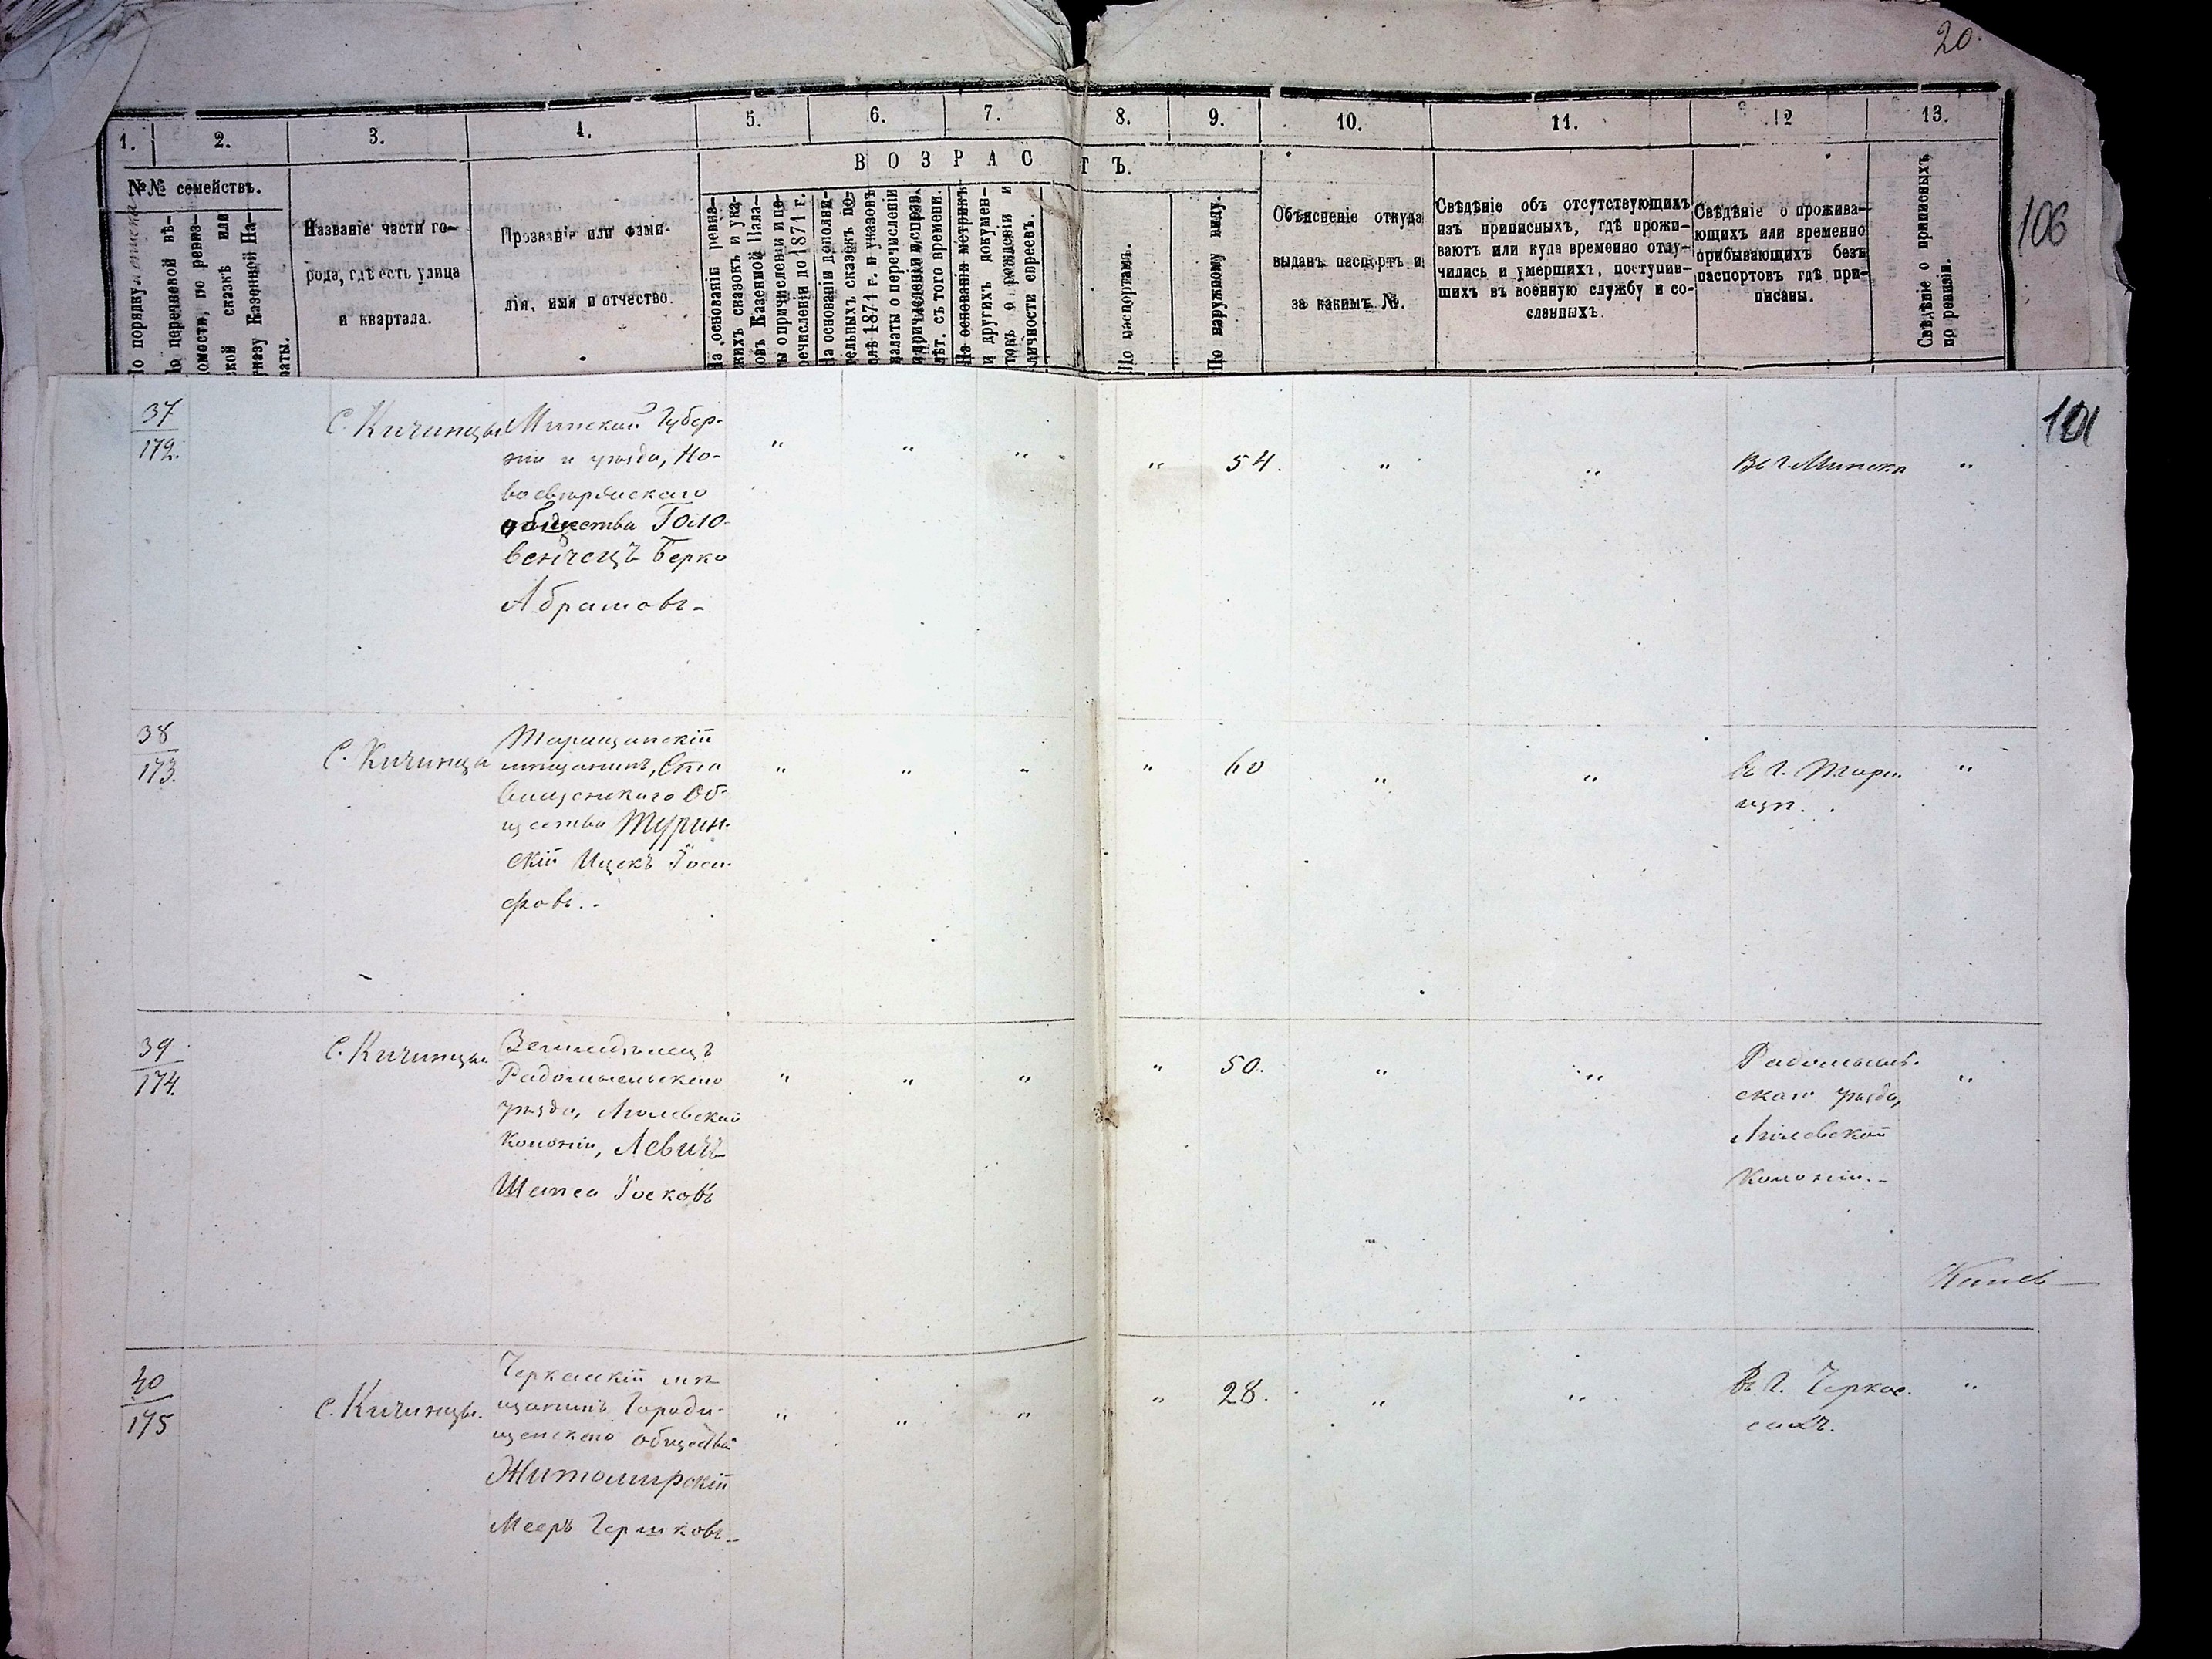 20.
1. 2. 3. 4. 5. 6. 7. 8. 9. 10. 11. 12 13.
ВОЗРАСТЪ.
№№ семействъ.
По порядку
По перечневой вѣ-
домости, по ревиз-
ской сказкѣ или
указу Казенной Па-
латы.
Названіе части го-
рода, гдѣ есть улица
и квартала.
Прозваніе или фами-
лія, имя и отчество.
На основаніи ревиз-
скихъ сказокъ и ука-
зовъ Казенной Пала-
ты о причисленіи и пе-
речисленіи до 1871 г.
На основаніи дополни-
тельныхъ сказокъ по-
слѣ 1871 г. и указовъ
палаты о перечисленіи
и причисленіи и справ.
лѣт. съ того времени.
На основаніи метрикъ
и другихъ докумен-
товъ о рожденіи и
личности евреевъ.
По паспортамъ.
По наружному виду.
Объясненіе откуда
выданъ паспортъ и
за какимъ №.
Свѣдѣніе объ отсутствующихъ
изъ приписныхъ, гдѣ прожи-
ваютъ или куда временно отлу-
чились и умершихъ, поступив-
шихъ въ военную службу и со-
сланныхъ.
Свѣдѣніе о прожива-
ющихъ или временно
прибывающихъ безъ
паспортовъ гдѣ при-
писаны.
Свѣдѣніе о приписныхъ
по ревизіи.
106
101
37
172.
С. Кичинцы
Минской Губер-
ніи и уѣзда, Но-
восвержанскаго
общества Голо-
венчецъ Берко
Абрамовъ-
" " " " 54. " " Въ г. Минскѣ "
38
173.
С. Кичинцы
Таращанскій
мѣщанинъ, Ста
вищенскаго Об-
щества Турин-
скій Ицекъ Іоси-
фовъ.-
" " " " 60 " " въ г. Тара
щѣ. "
39
174.
С. Кичинцы
Земледѣлецъ
Радомысльскаго
уѣзда,
Колоніи, Левичъ
Шапса Іосковъ
" " " " 50. " " Радомысль-
скаго уѣзда,
Колоніи.- "
40
175
с. Кичинцы.
Черкасскій мѣ
щанинъ Городи-
щенскаго общества
Житомирскій
Мееръ Гершковъ-
" " " " 28. " " Въ г. Черкас-
сахъ. "